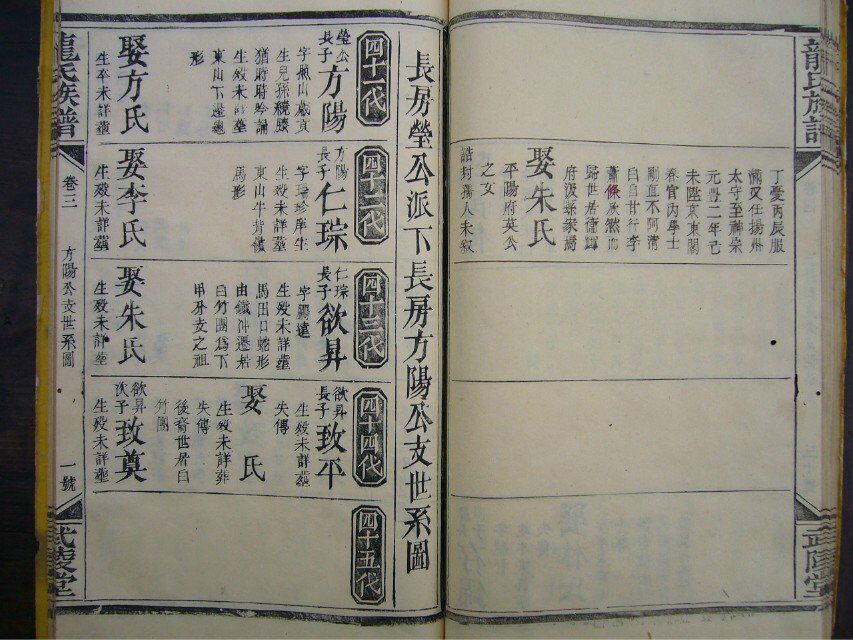 龍氏族譜
丁憂丙辰服
滿又任揚州
太守至神宗
元豐二年己
未陞東東閣
春官內學士
剛直不阿常
自甘行李
蕭條欣然而
歸世居衛輝
府汲縣家焉
娶朱氏
平陽府英公
之女
誥封孺人未敘
武陵堂
長房瑩公派下長房方陽公支世系圖
四十一代
瑩公
長子
方陽
字照山歲貢
生兒孫繞膝
猶時時吟誦
生歿未詳塟
東山下
形
娶方氏
生卒未詳塟
四十二代
方陽
長子
仁琮
生歿未詳塟
東山牛背嶺
馬形
娶李氏
生歿未詳塟
四十三代
仁琮
長子
欲昇
字騰遠
生歿未詳塟
馬田口蛇形
由鐵冲遷居
白竹團為下
甲分支之祖
娶朱氏
生歿未詳塟
四十四代
欲昇
長子
致平
生歿未詳塟
失傳
娶 氏
生歿未詳葬
失傳
欲昇
次子
致奠
後裔世居白
竹團
生歿未詳塟
四十五代
龍氏族譜
卷三
方陽公支世系圖
一號
武陵堂